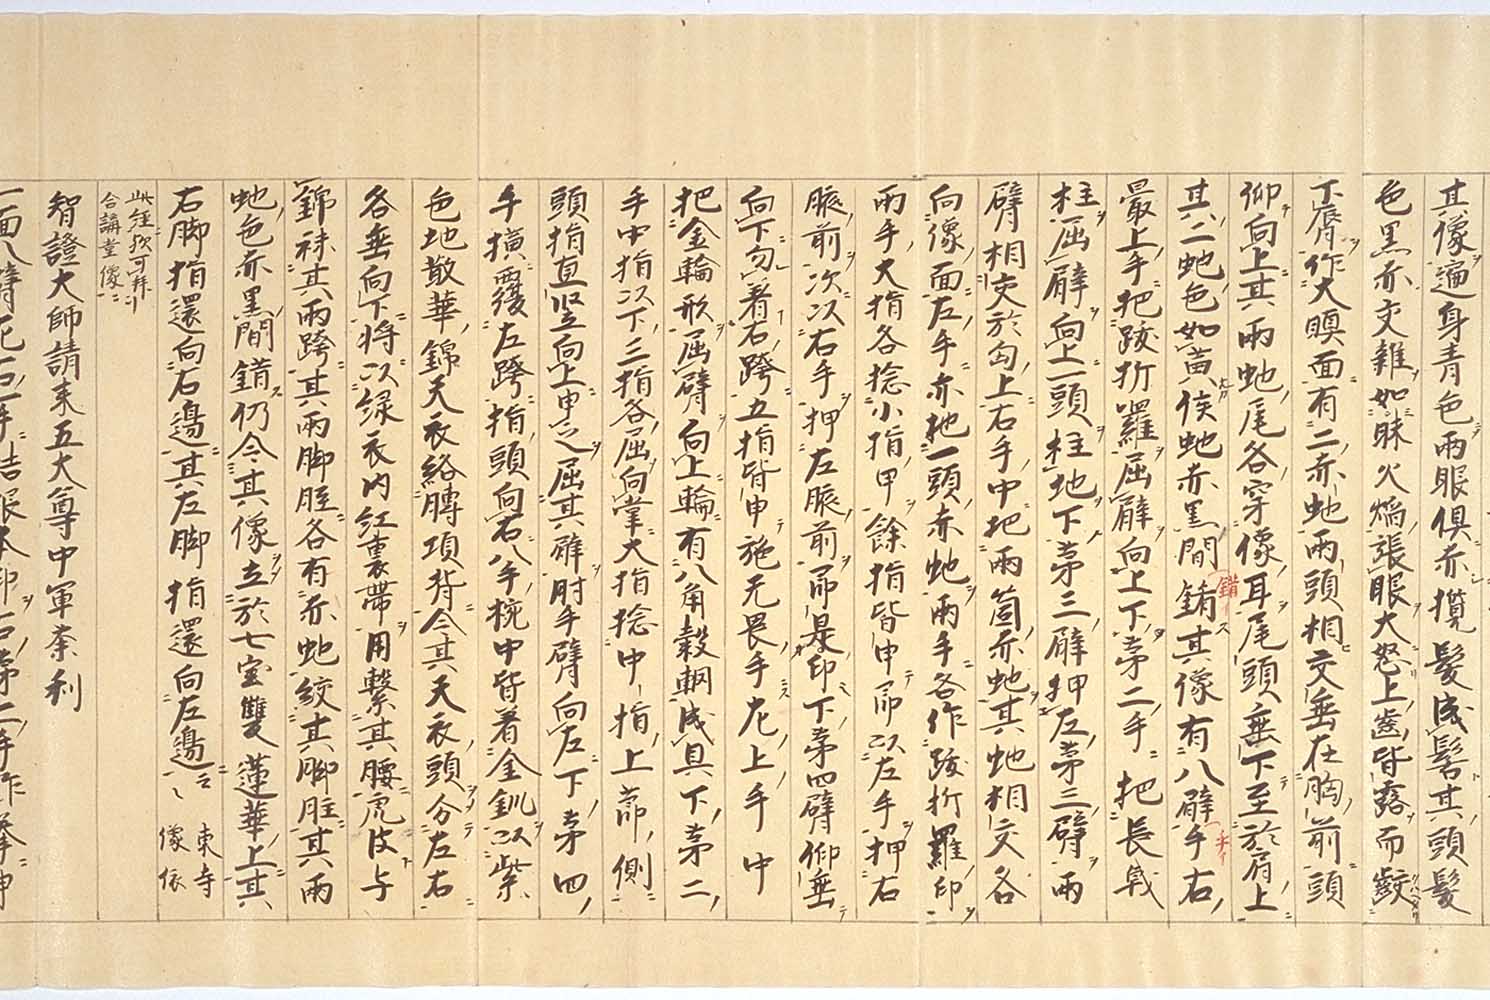 其像遍身青色兩眼俱赤攬髮成髻其頭髮
色黒赤交雑如昧火焔張眼大怒上齒皆露而齩
下脣作大瞋面有二赤虵兩頭相交垂在胸前頭
仰向上其兩虵尾各穿像耳尾頭垂下至於肩上
其二虵色如黄侯虵赤黒間錯其像有八臂手右
最上手把跋折羅屈臂向上下苐二手把長戟
柱屈臂向上一頭柱地下苐三臂押左苐三臂兩
臂相交於匈上右手中把兩箇赤虵其虵相交各
向像面左手亦把一頭赤虵兩手各作跋折羅印
兩手大指各捻小指甲餘指皆申即以左手押右
腋前次以右手押左腋前即是印下苐四臂仰垂
向下勿著右跨五指皆申施无畏手左上手中
把金輪形屈臂向上輪有八角轂輞成具下苐二
手中指以下三指各屈向掌大指捻中指上節側
頭指直竪向上申之屈其臂肘手臂向左下苐四
手横覆左跨指頭向右八手椀中皆著金釧以紫
色地散華錦天衣絡髆項背令其天衣頭分左右
各垂向下将以緑衣内紅裏帶用繫其腰虎皮与
錦袜其兩跨其兩脚脛各有赤虵絞其脚脛其兩
虵色赤黒間錯仍令其像立於七寳雙蓮華上其
右脚指還向右邊其左脚指還向左邊云云 東寺像依
此經
合講堂像
智證大師請来五大尊中軍荼利